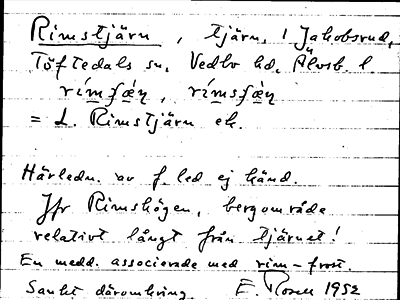 Rimstjärn, tjärn, i Jakobsrud,
Töftedals sn. Vedbo hd. Älvsb. l.
= L. Rimstjärn ek.
Härledn. av f. led ej känd.
Jfr Rimshögen, bergområde
relativt långt från tjärnet!
En medd. associerade med rim-frost.
Sankt däromkring. E. Rosell 1952